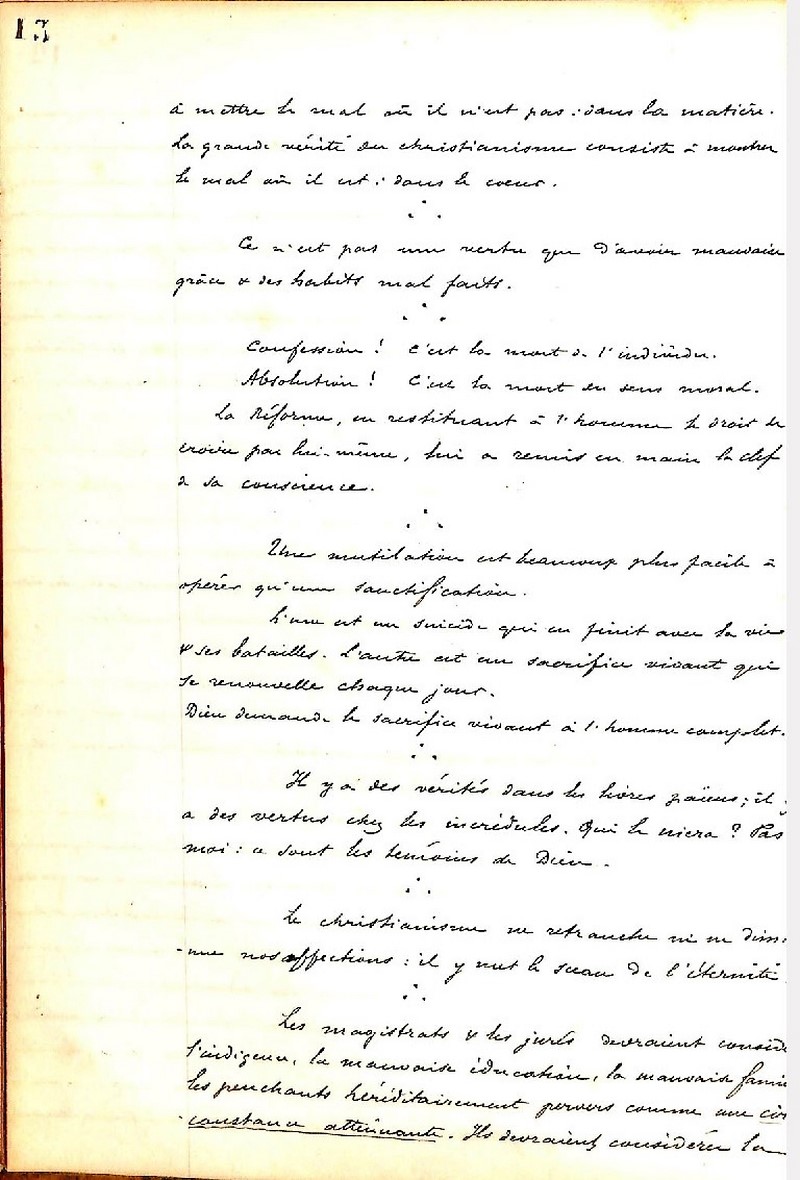 13
à mettre le mal où il n'est pas : dans la matière.
La grande vérité du christianisme consiste à montrer
le mal où il est : dans le coeur.
Ce n'est pas une vertu que d'avoir mauvaise
grâce & des habits mal faits.
Confession ! C'est la mort de l'individu.
Absolution ! C'est la mort du sens moral.
La Réforme, en restituant à l'homme le droit de
croire par lui-même, lui a remis en main la clef
de sa conscience.
Une mutilation est beaucoup plus facile à
opérer qu'une sanctification.
L'une est un suicide qui en finit avec la vie
& ses batailles. L'autre est un sacrifice vivant qui
se renouvelle chaque jour.
Dieu demande le sacrifice vivant à l'homme complet.
Il y a des vérités dans les livres païens ; il y
a des vertus chez les incrédules. Qui le niera ? Pas
moi : ce sont les témoins de Dieu.
Le christianisme ne retranche ni ne dimi-
-nue nos affections : il y met le sceau de l'éternité
Les magistrats & les jurés devraient considé
l'indigence, la mauvaise éducation, la mauvaise famil
les penchants héréditairement pervers comme une cir
-constance atténuante. Ils devraient considérer la